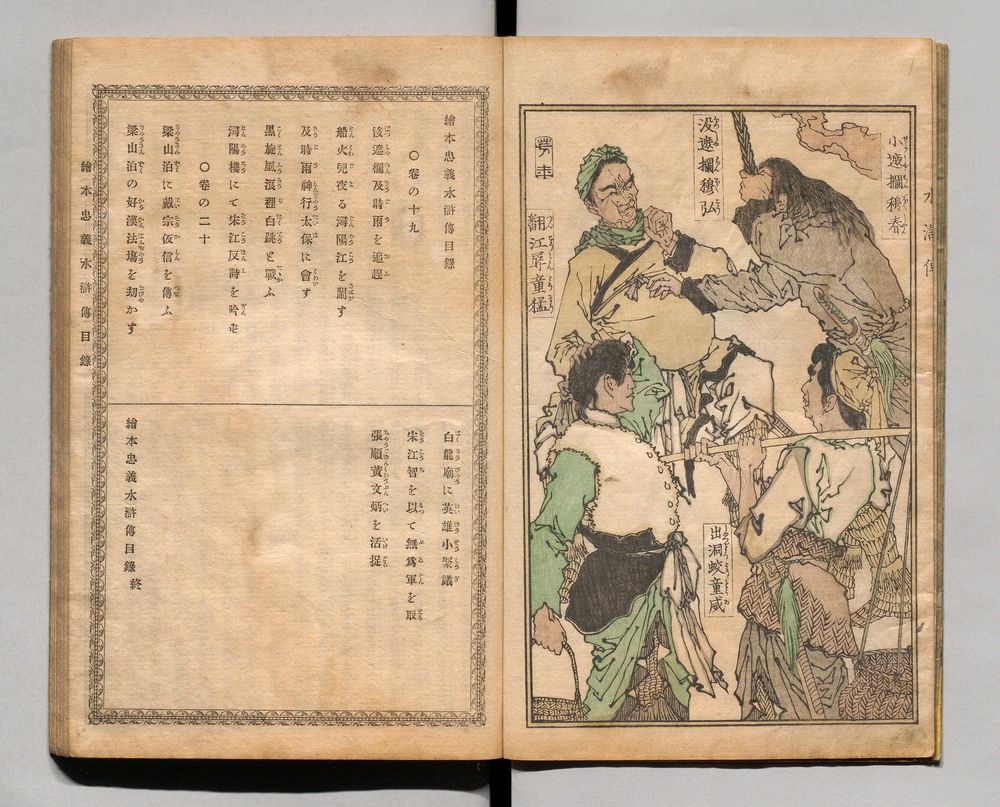 水滸傳
小遮攔穆春
没遮攔穆弘
翻江蜃童猛
出洞蛟童威
繪本忠義水滸傳目錄
〇卷の十九
没遮攔及時雨を追趕
船火兒夜る潯陽江を鬧す
及時雨神行太保に會す
黑旋風浪裡白跳と戰ふ
潯陽樓にて宋江反詩を吟ず
〇卷の二十
梁山泊に戴宗仮信を傳ふ
梁山泊の好漢法場を劫かす
白龍廟に英雄小聚議
宋江智を以て無爲軍を取
張順黄文炳を活捉
繪本忠義水滸傳目錄終
繪本忠義水滸傳目錄